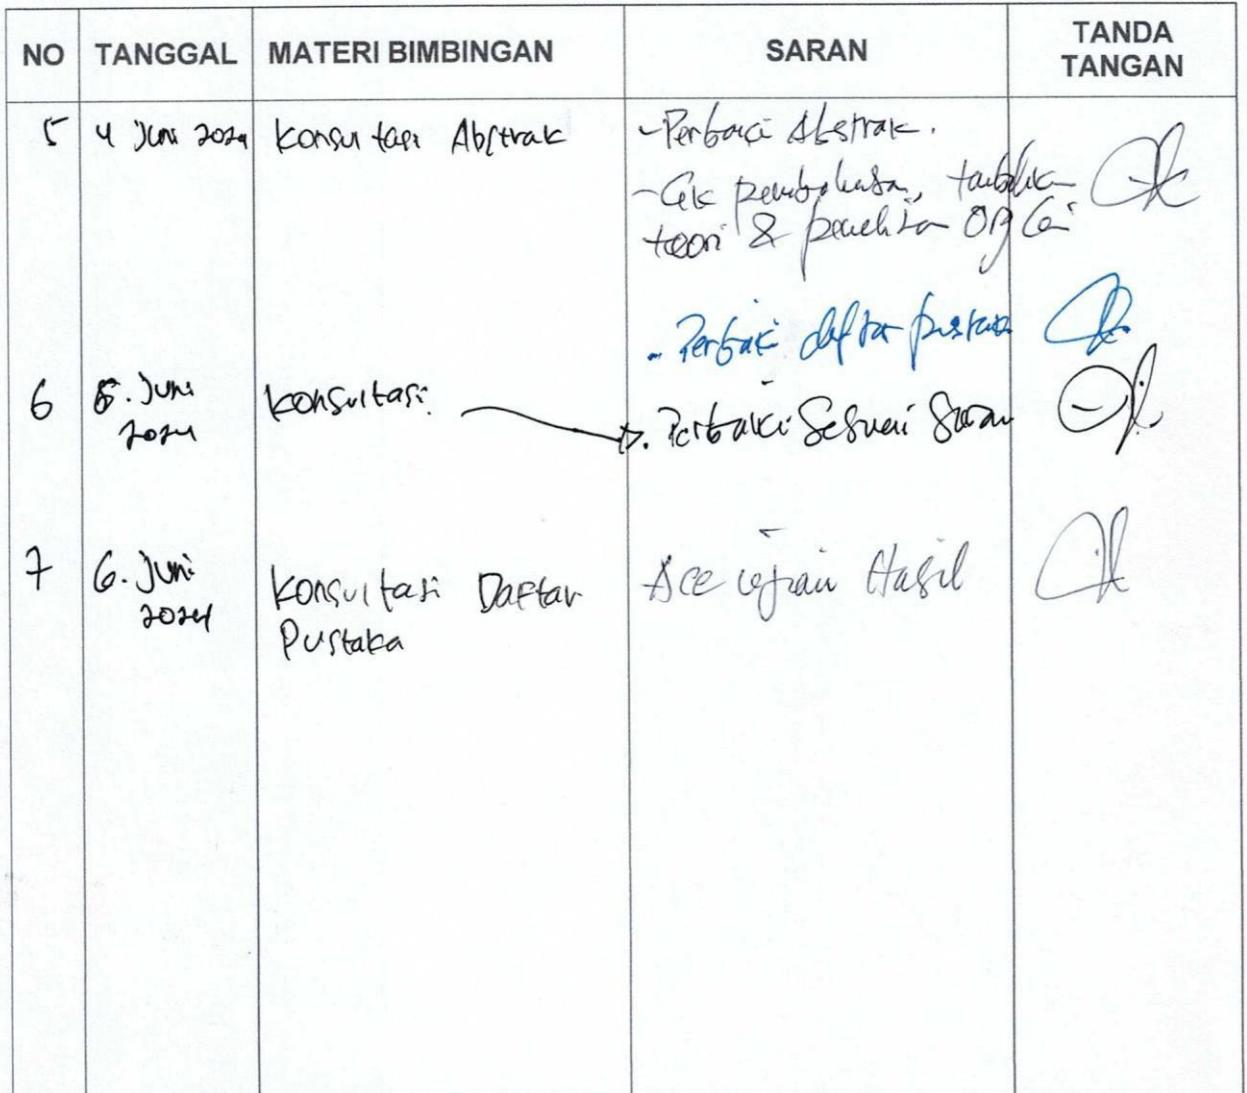 NO TANGGAL MATERI BIMBINGAN SARAN TANDA TANGAN
5 4 Juni 2024 Konsultasi Abstrak - Perbaiki Abstrak.
- Cek pembahasan,
teori & penelitian
- Perbaiki daftar pustaka
6 5. Juni 2024 Konsultasi. Perbaiki Sesuai Saran
7 6. Juni 2024 Konsultasi Daftar Pustaka Acc ujian Hasil